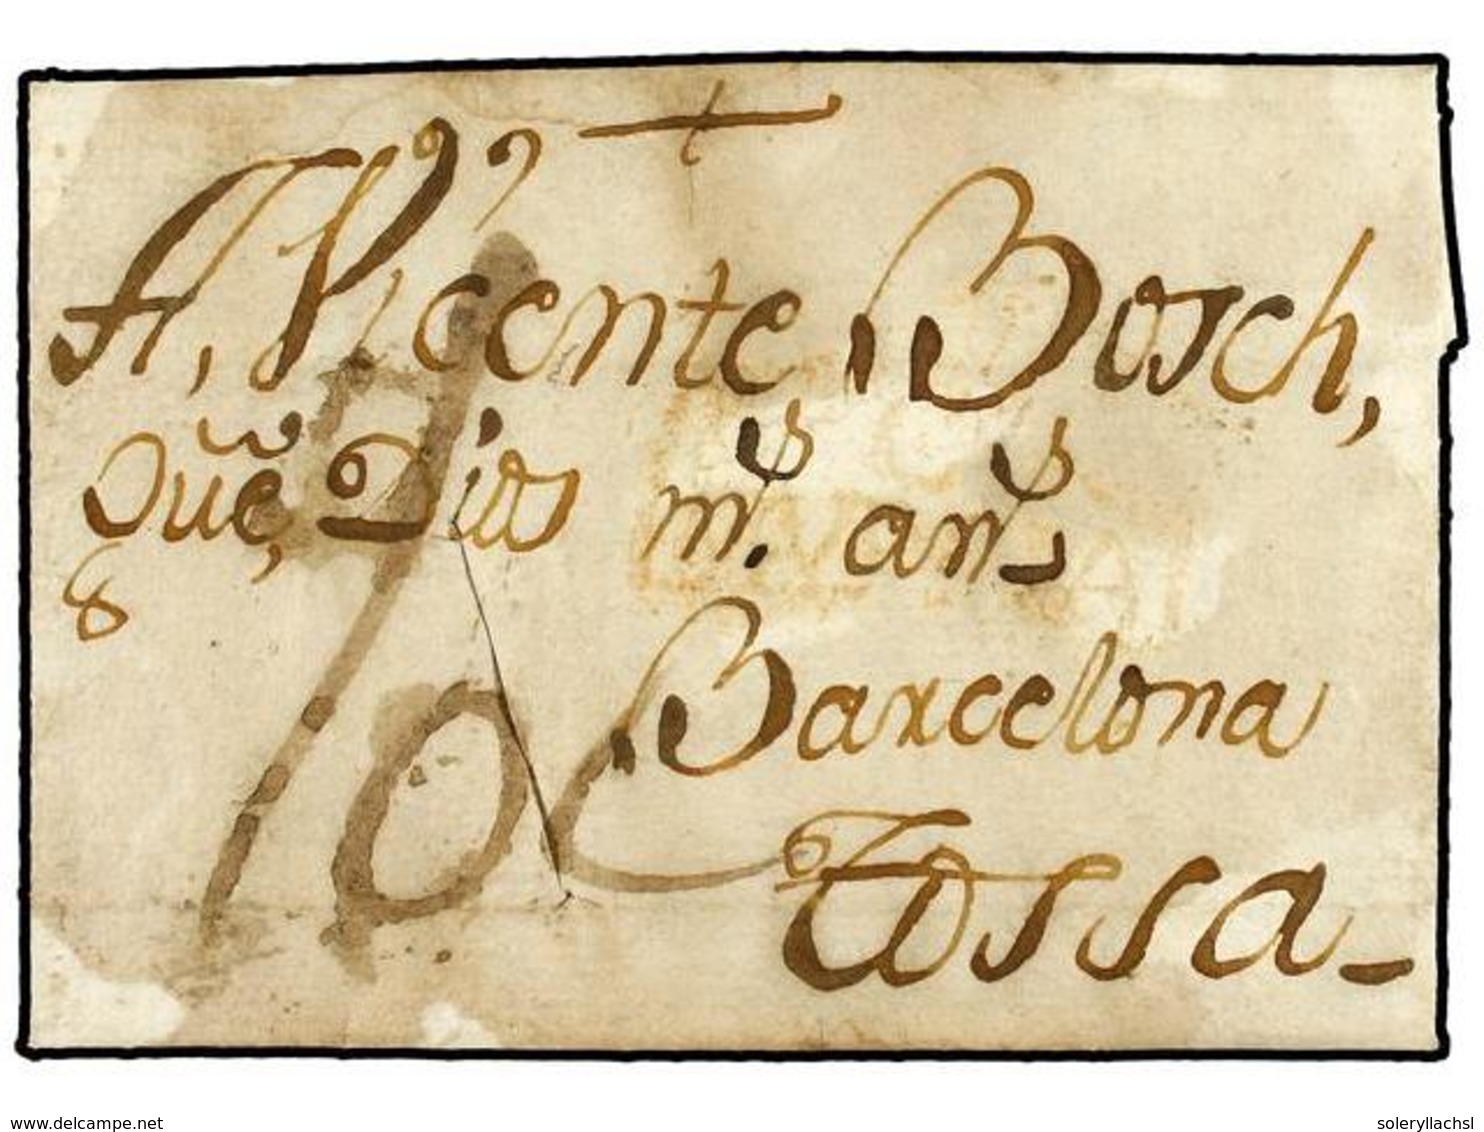 +
A, Vicente, Bosch,
Gue, Dios ms. ans
Barcelona
Tossa-
www.delcampe.net
soleryllachsl